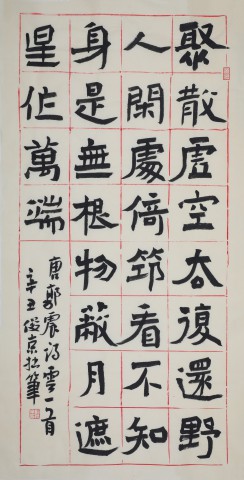 聚散虛空去復還野
人閑處倚筇看不知
身是無根物蔽月遮
星作萬端
唐郭震詩雲一首
辛丑俊京拙筆